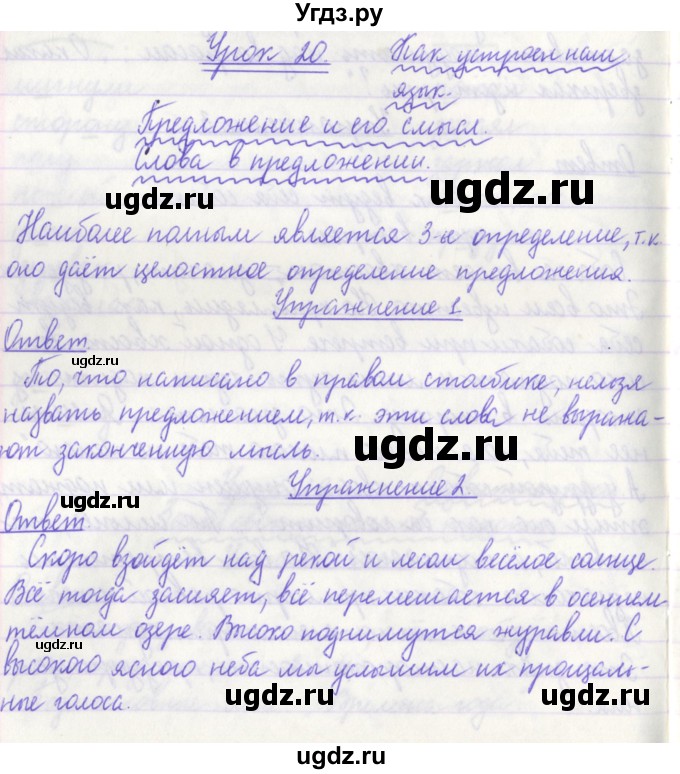 Угдз.ру
Урок 20. Как устроен наш
язык.
Предложение и его смысл.
Слова в предложении.
ugdz.ru ugdz.ru
Наиболее полным является 3-е определение, т.к.
оно даёт целостное определение предложения.
Упражнение 1
Ответ
ugdz.ru
То, что написано в правом столбике, нельзя
назвать предложением, т.к. эти слова не выража-
ют законченную мысль.
ugdz.ru
Упражнение 2
ugdz.ru
Ответ
Скоро взойдёт над рекой и лесом весёлое солнце.
Всё тогда засияет, всё перемешается в осеннем
тёмном озере. Высоко поднимутся журавли. С
высокого ясного неба мы услышим их прощаль-
ные голоса.
ugdz.ru ugdz.ru
ugdz.ru